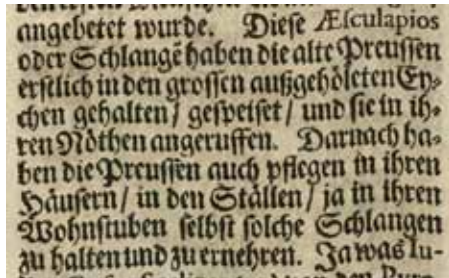 angebetet wurde. Diese Æsculapios
oder Schlangẽ haben die alte Preussen
erstlich in den grossen außgehöleten Ey-
chen gehalten / gespeiset / und sie in ih-
ren Nöthen angeruffen. Darnach ha-
ben die Preussen auch pflegen in ihren
Häusern / in den Ställen / ja in ihren
Wohnstuben selbst solche Schlangen
zu halten und zu ernehren. Ja was Lu-